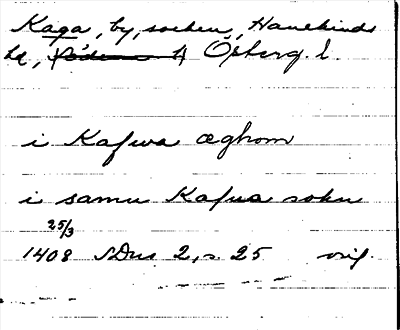 Kaga, by, socken, Hanekinds
hd, Österg.l.
i Kafwa æghom
i samu Kafua sokn
25/3
1408 SDns 2, s. 25 orig.